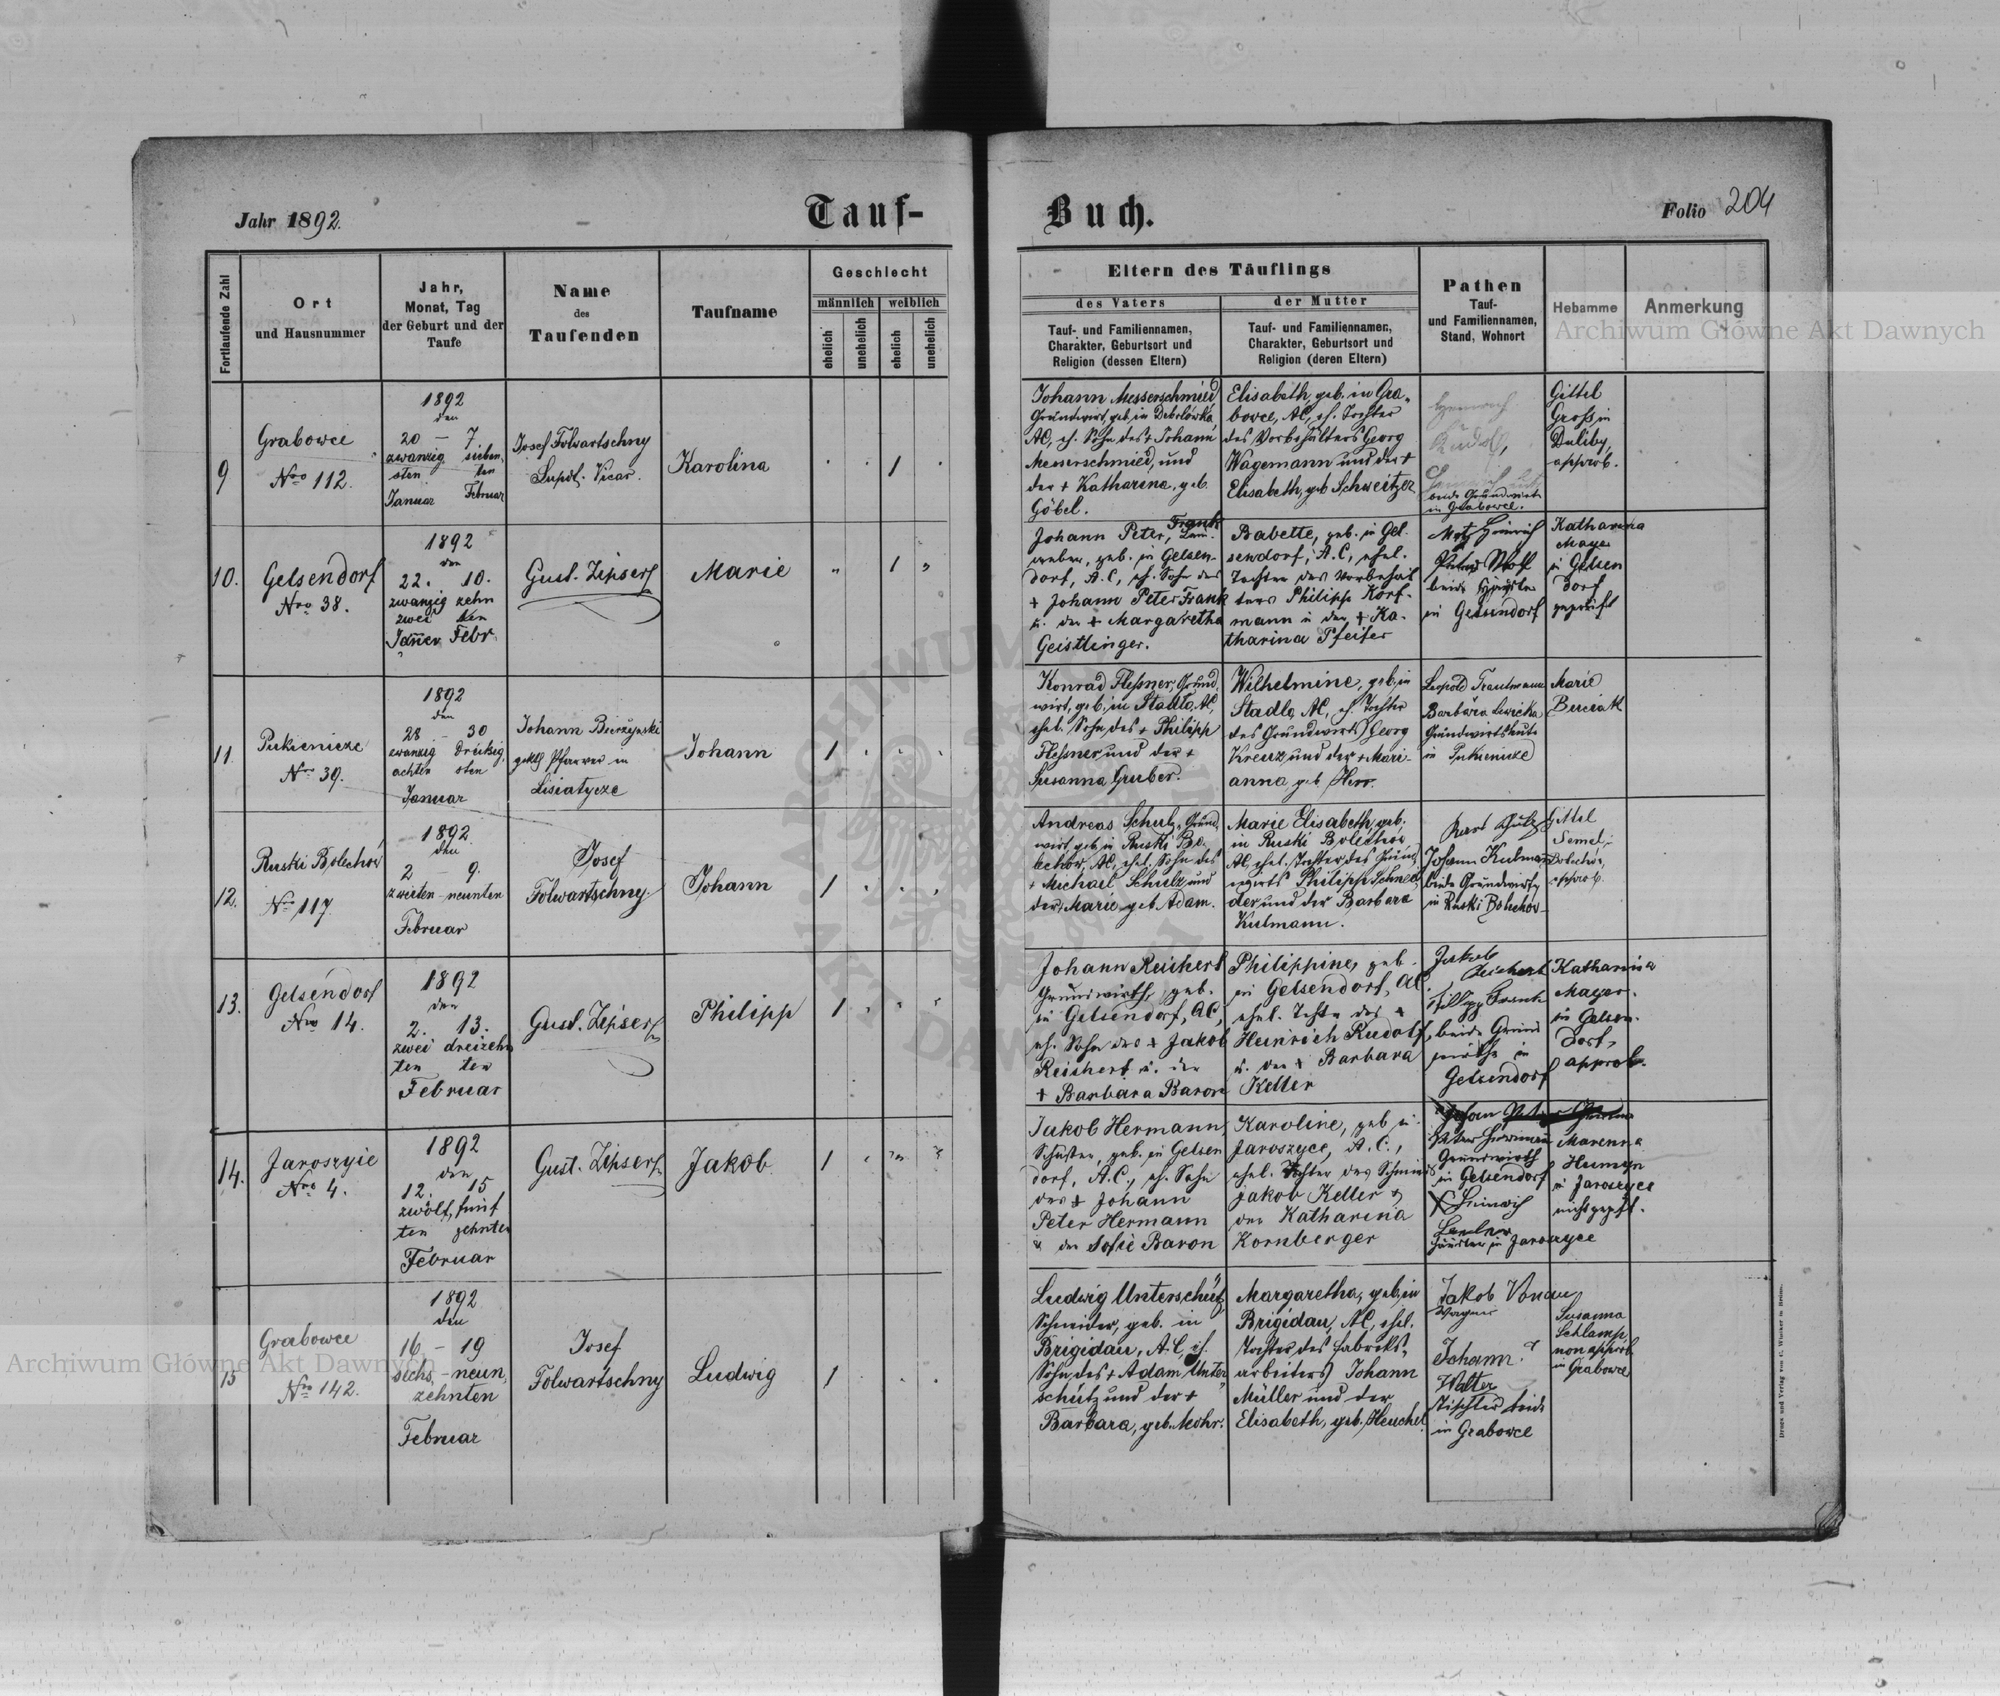 Jahr 1892.
Tauf-
Buch.
Folio 204
Fortlaufende Zahl
Ort
und Hausnummer
Jahr,
Monat, Tag
der Geburt und der
Taufe
Name
des
Taufenden
Taufname
Geschlecht
männlich
weiblich
ehelich
unehelich
ehelich
unehelich
Eltern des Täuflings
des Vaters
der Mutter
Tauf- und Familiennamen,
Charakter, Geburtsort und
Religion (dessen Eltern)
Tauf- und Familiennamen,
Charakter, Geburtsort und
Religion (deren Eltern)
Pathen
Tauf-
und Familiennamen,
Stand, Wohnort
Hebamme
Anmerkung
9
Grabowce
Nro 112.
1892
den
20 — 7.
zwanzig sieben
sten ten
Januar Februar
Josef Folwartschny
Supdt. Vicar.
Karolina
1
Johann Messerschmied
Grundwirt, geb. in Debolówka,
AC, eh. Sohn des + Johann
Messerschmied, und
der + Katharina, geb.
Göbel.
Elisabeth, geb. in Gra-
bowce, AC, eh. Tochter
des Vorbehälters Georg
Wagemann und der +
Elisabeth, geb. Schweitzer
Heinrich
Rudolf,
beide Grundwirte
in Grabowce.
Gittel
Gross in
Duliby,
approb.
10.
Gelsendorf
Nro 38.
1892
den
22. 10.
zwanzig zehn
zwei ten
Jänner Febr.
Gust. Zipser
Marie
1
Johann Peter, Frank
weber, geb. in Gelsen-
dorf, A.C, eh. Sohn des
+ Johann Peter Frank
u. der + Margaretha
Geistlinger.
Babette, geb. in Gel-
sendorf, A.C, ehel.
Tochter des Vorbehäl
ters Philipp Korf-
mann u. der + Ka-
tharina Pfeifer
Motz Heinrich
beide
in Gelsendorf
Katharina
Mayer
in Gelsen
dorf
geprüft
11
Pukienicze
Nro 39.
1892
den
28 — 30
zwanzig dreißig,
achten sten
Januar
Johann Bierzynski
gkth Pfarrer in
Lisiatycze
Johann
1
Konrad Flessner, Grund,
wirt, geb. in Stadlo, AC,
ehel. Sohn des + Philipp
Flessner und der +
Susanna Gruber.
Wilhelmine, geb. in
Stadlo, AC, eh. Tochter
des Grundwirts Georg
Kreuz und der + Mari-
anna geb. Herr.
Leopold Trautmann
Barbara
Grundwirtsleute
in Pukienicze
Marie
Berciak
12.
Ruski Bolechów
Nro 117.
1892
den
2 — 9.
zweiten — neunten
Februar
Josef
Folwartschny.
Johann
1
Andreas Schulz, Grund,
wirt, geb. in Ruski Bo-
lechów, AC, ehel. Sohn des
+ Michael Schulz und
der Marie geb. Adam.
Marie Elisabeth, geb.
in Ruski Bolechów
AC, ehel. Tochter des Grund
wirts Philipp Schnei
der und der Barbara
Kulmann.
Karl Schulz
Johann Kulmann
beide Grundwirte
in Ruski Bolechów
Gittel
Semel,
Bolechów,
approb.
13.
Gelsendorf
Nro 14.
1892
den
2. 13.
zwei dreizehn
ten ten
Februar
Gust. Zipser
Philipp
1
Johann Reichert
Grundwirth, geb.
in Gelsendorf, AC,
eh. Sohn des + Jakob
Reichert u. der
+ Barbara Baron
Philippine, geb.
in Gelsendorf, AC.
ehel. Tochter des +
Heinrich Rudolf,
u. der + Barbara
Keller
Jakob
Reichert
Filipp Frank
beide Grund
wirthe in
Gelsendorf
Katharina
Mayer.
in Gelsen-
dorf,
approb.
14.
Jaroszyie
Nro 4.
1892
den
12. 15
zwölf, fünf
ten zehnten
Februar
Gust. Zipser
Jakob
1
Jakob Hermann,
Schuster, geb. in Gelsen
dorf, A.C., eh. Sohn
des + Johann
Peter Hermann
u. der Sofie Baron
Karoline, geb. in
Jaroszyce, A.C.,
ehel. Tochter des Schmieds
Jakob Keller &
der Katharina
Kornberger
Johan Peter
Peter Hermann
Grundwirth
in Gelsendorf
X Heinrich
in Jaroszyce
Marenna
Humeyn
in Jaroszyce
nicht gepft.
15
Grabowce
Nro 142.
1892
den
16 — 19
sechs, — neun,
zehnten
Februar
Josef
Folwartschny
Ludwig
1
Ludwig Unterschütz,
Schneider, geb. in
Brigidau, A.C, eh.
Sohn des + Adam Unter,
schütz und der +
Barbara, geb. Mohr.
Margaretha, geb. in
Brigidau, AC, ehel.
Tochter des Fabriks,
arbeiters Johann
Müller und der
Elisabeth, geb. Heuchel.
Jakob Vonau,
Wagner
Johann
Walter
Tischler beide
in Grabowce
Susanna
Schlamp,
non approb.
in Grabowce
Druck und Verlag von C. Winiker in Brünn.
Archiwum Główne Akt Dawnych
Archiwum Główne Akt Dawnych